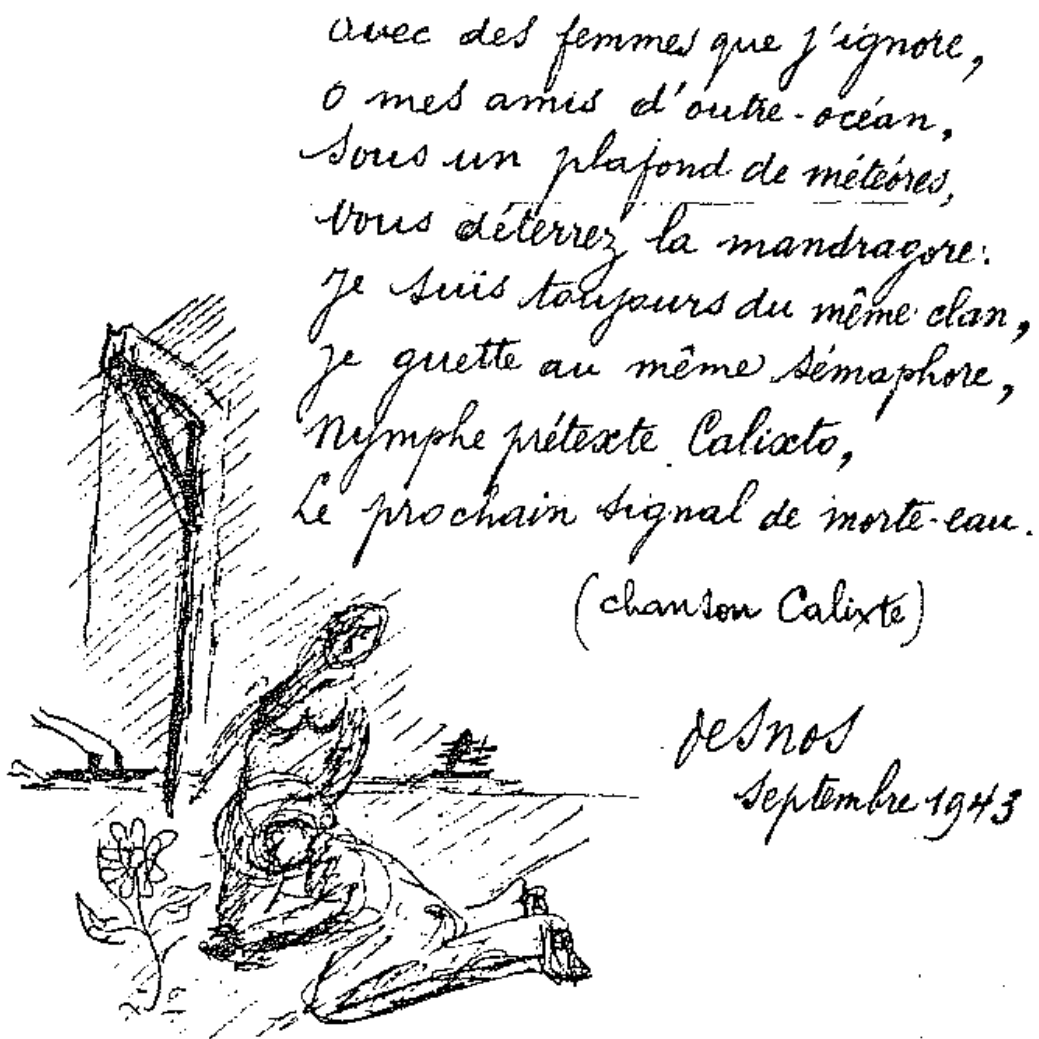 Avec des femmes que j'ignore,
O mes amis d'outre-océan,
Sous un plafond de météores,
Vous déterrez la mandragore:
Je suis toujours du même clan,
Je guette au même sémaphore,
Nymphe prétexte Calixto,
Le prochain signal de morte-eau.
(chanson Calixte)
Desnos
Septembre 1943